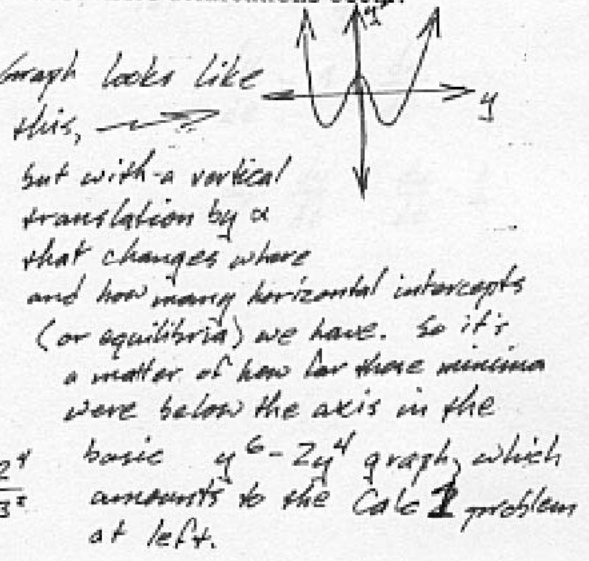 y'
Graph looks like
this,
y
but with a vertical
translation by α
that changes where
and how many horizontal intercepts
(or equilibria) we have. So it's
a matter of how far those minima
were below the axis in the
basic y⁶ - 2y⁴ graph, which
amounts to the Calc 1 problem
at left.